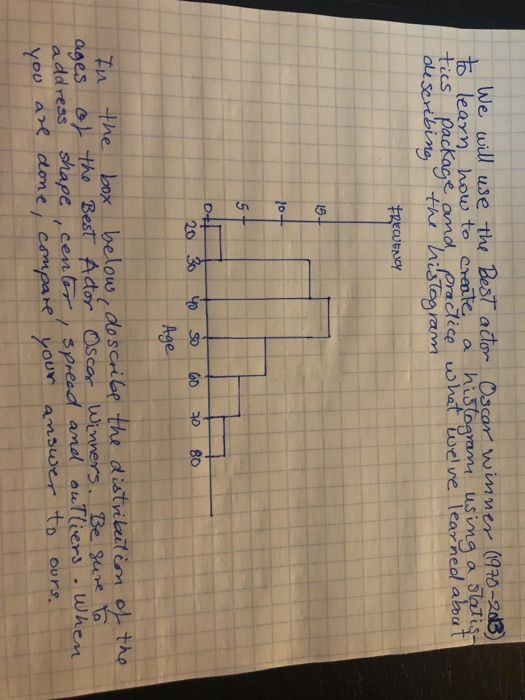 We will use the Best actor Oscar winner (1970-2013)
to learn how to create a histogram using a statis-
tics package and practice what we've learned about
describing the histogram
FREQUENCY
15
10
5
0
20 30 40 50 60 70 80
Age
In the box below, describe the distribution of the
ages of the Best Actor Oscar Winners. Be sure to
address shape, center, spread and outliers. When
you are done, compare your answer to ours.